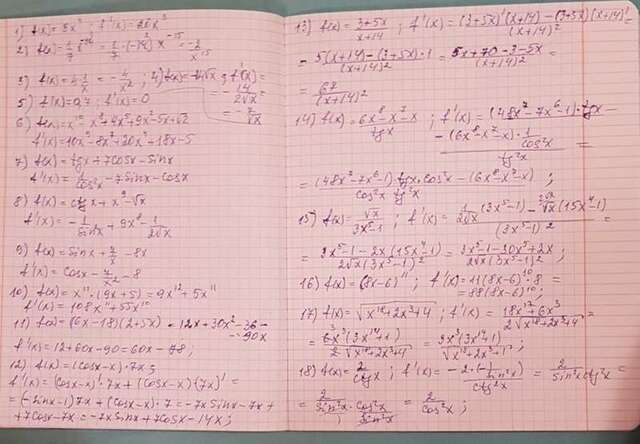 1) f(x)=5x⁴ ; f'(x)=20x³
2) f(x)=1/7 x⁻¹⁴ = 1/7·(-14)x⁻¹⁵ = -2/x¹⁵
3) f(x)=4·1/x = -4/x² ; 4) f(x)=-14√x ; f'(x)=
5) f(x)=0,7 ; f'(x)=0
= -14/2√x =
= -7/√x
6) f(x)=x¹⁰ x⁸+4x⁵+9x²-5x+√2
f'(x)=10x⁹-8x⁷+20x⁴+18x-5
7) f(x)=tgx+7cosx-sinx
f'(x)=1/cos²x -7sinx-cosx
8) f(x)=ctgx+x⁹-√x
f'(x)=-1/sin²x +9x⁸-1/2√x
9) f(x)=sinx+7/x-8x
f'(x)=cosx-7/x²-8
10) f(x)=x¹¹·(9x+5)=9x¹²+5x¹¹
f'(x)=108x¹¹+55x¹⁰
11) f(x)=(6x-18)(2+5x)=12x+30x²-36-
-90x
f'(x)=12+60x-90=60x-78;
12) f(x)=(cosx-x)·7x;
f'(x)=(cosx-x)'·7x+(cosx-x)(7x)'=
=(-sinx-1)7x+(cosx-x)·7=-7x sinx-7x+
+7cosx-7x=-7x sinx+7cosx-14x;
13) f(x)=3+5x/x+14 ; f'(x)=(3+5x)'(x+14)-(3+5x)(x+14)'/(x+14)² =
= 5(x+14)-(3+5x)·1/(x+14)² = 5x+70-3-5x/(x+14)² =
= 67/(x+14)²
14) f(x)=6x⁸-x⁷-x/tgx ; f'(x)=(48x⁷-7x⁶-1)·tgx-
-(6x⁸-x⁷-x)·1/cos²x / tg²x =
=(48x⁷-7x⁶-1)tgx·cos²x-(6x⁸-x⁷-x)/cos²x·tg²x ;
15) f(x)=√x/3x⁵-1 ; f'(x)=1/2√x(3x⁵-1)-√x(15x⁴-1)/(3x⁵-1)² =
= 3x⁵-1-2x(15x⁴-1)/2√x(3x⁵-1)² = 3x⁵-1-30x⁵+2x/2√x(3x⁵-1)² ;
16) f(x)=(8x-6)¹¹ ; f'(x)=11(8x-6)¹⁰·8=
=88(8x-6)¹⁰ ;
17) f(x)=√x¹⁸+2x³+4 ; f'(x)=18x¹⁷+6x³/2√x¹⁸+2x³+4 =
= 6x³(3x¹⁴+1)/2√x¹⁸+2x³+4 = 3x³(3x¹⁴+1)/√x¹⁸+2x³+1 ;
18) f(x)=2/ctgx ; f'(x)=-2·(-1/sin²x)/ctg²x = 2/sin²x ctg²x =
= 2/sin²x·cos²x/sin²x = 2/cos²x ;